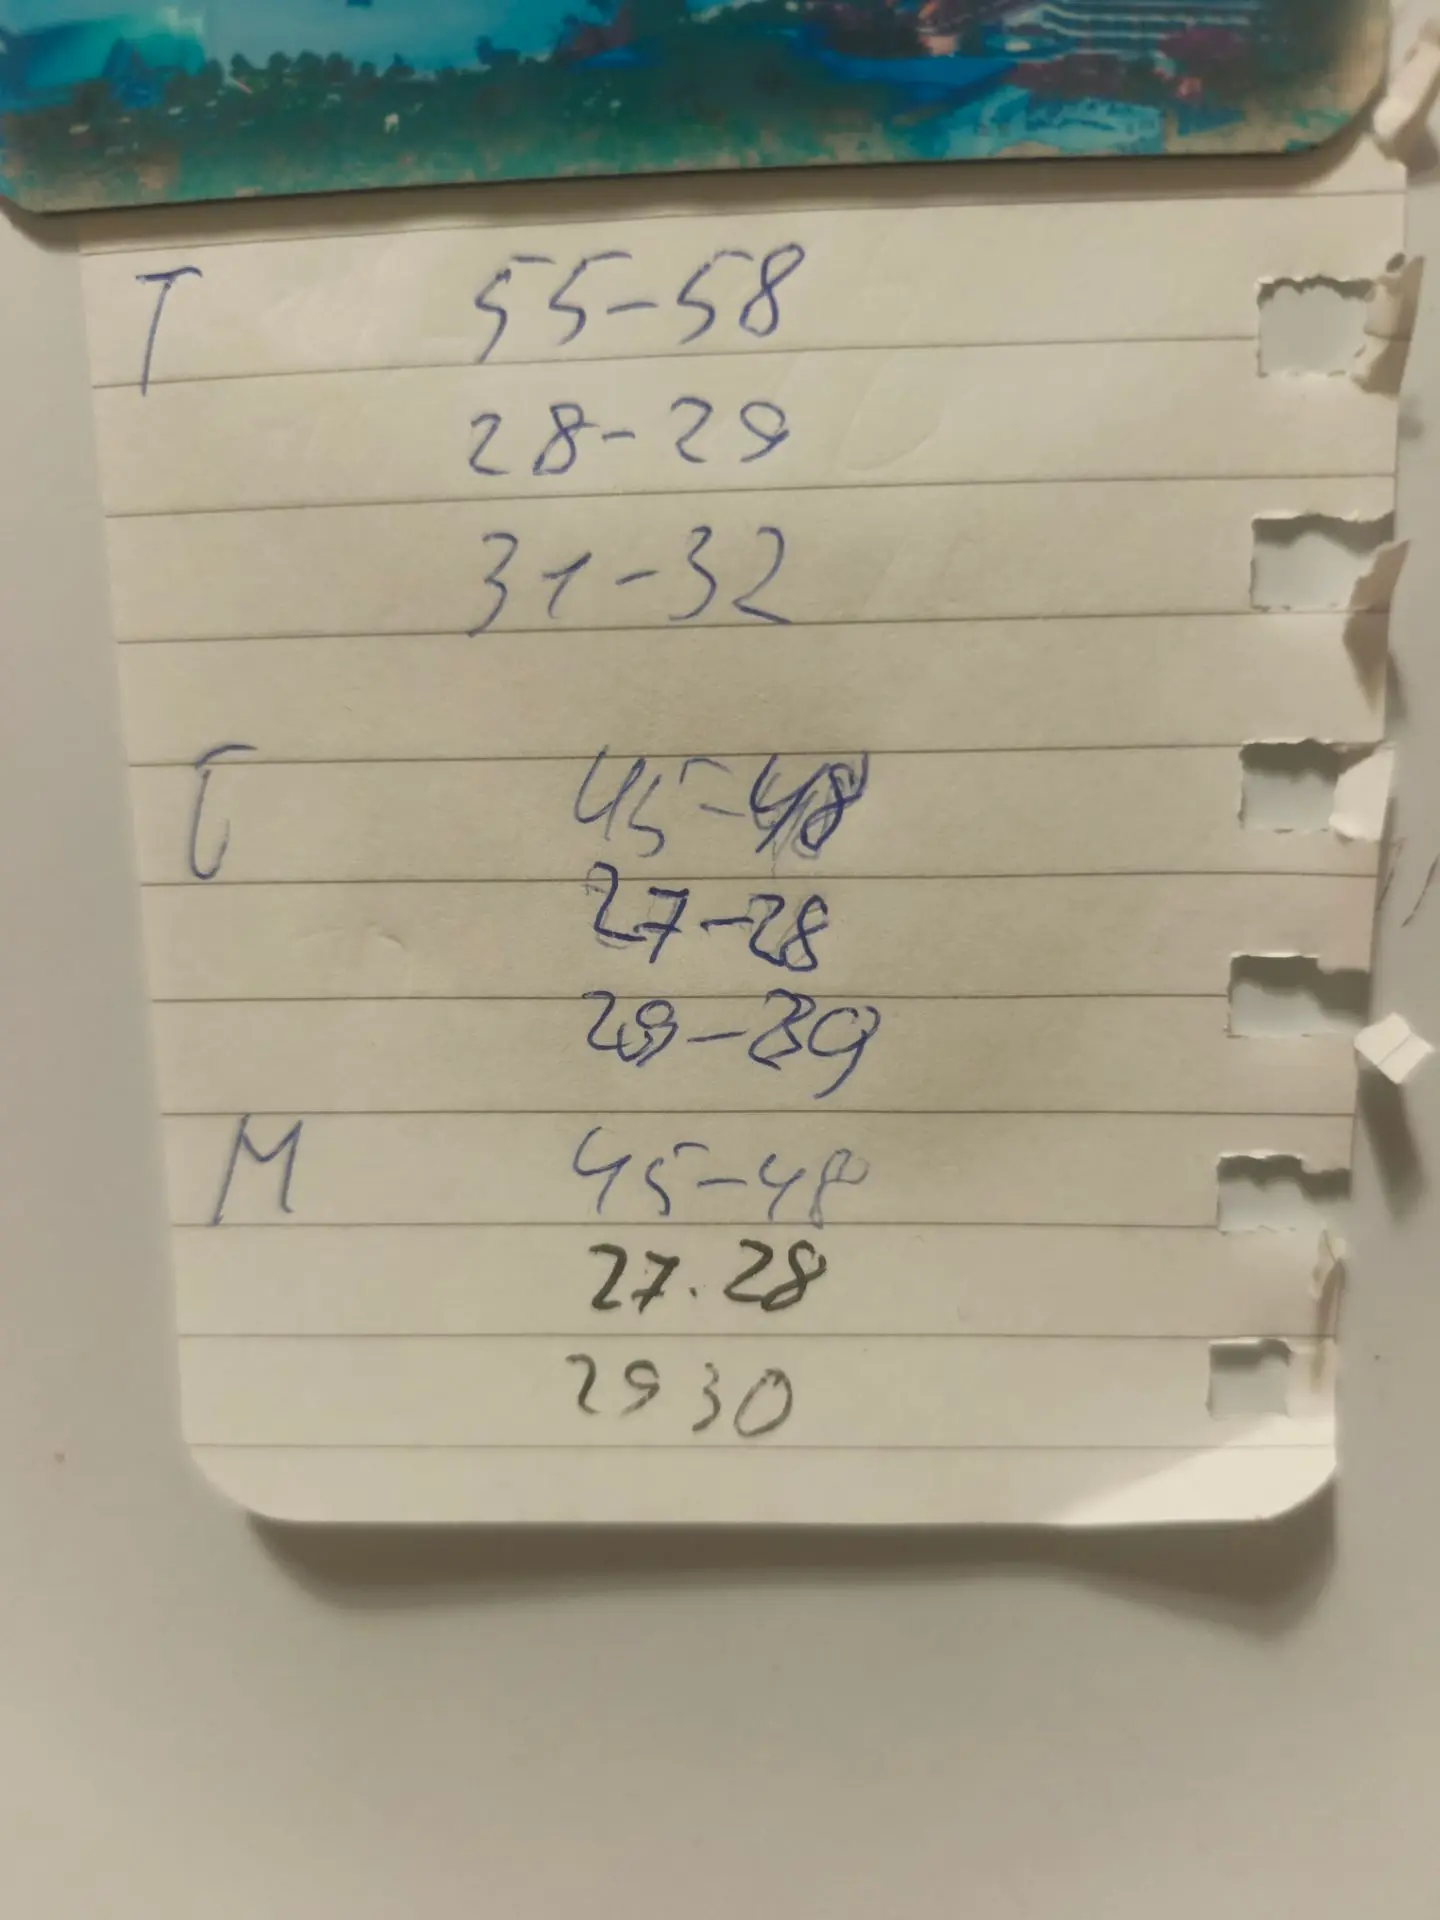 T 55-58
28-29
31-32
45-48
27-28
M 45-48
27.28
29 30